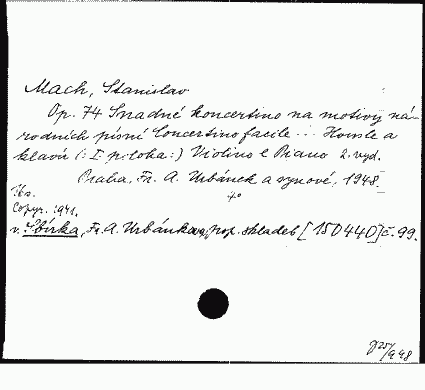 Mach, Stanislav
Op. 74 Snadné koncertino na motivy ná-
rodních písní Concertino facile ... Housle a
klavír (: I. poloha :) Violino e Piano 2. vyd.
Praha, Fr. A. Urbánek a synové, 1948.
4°
Copyr. 1941.
v. Sbírka, Fr. A. Urbánkova, skladeb [150440] č. 99.